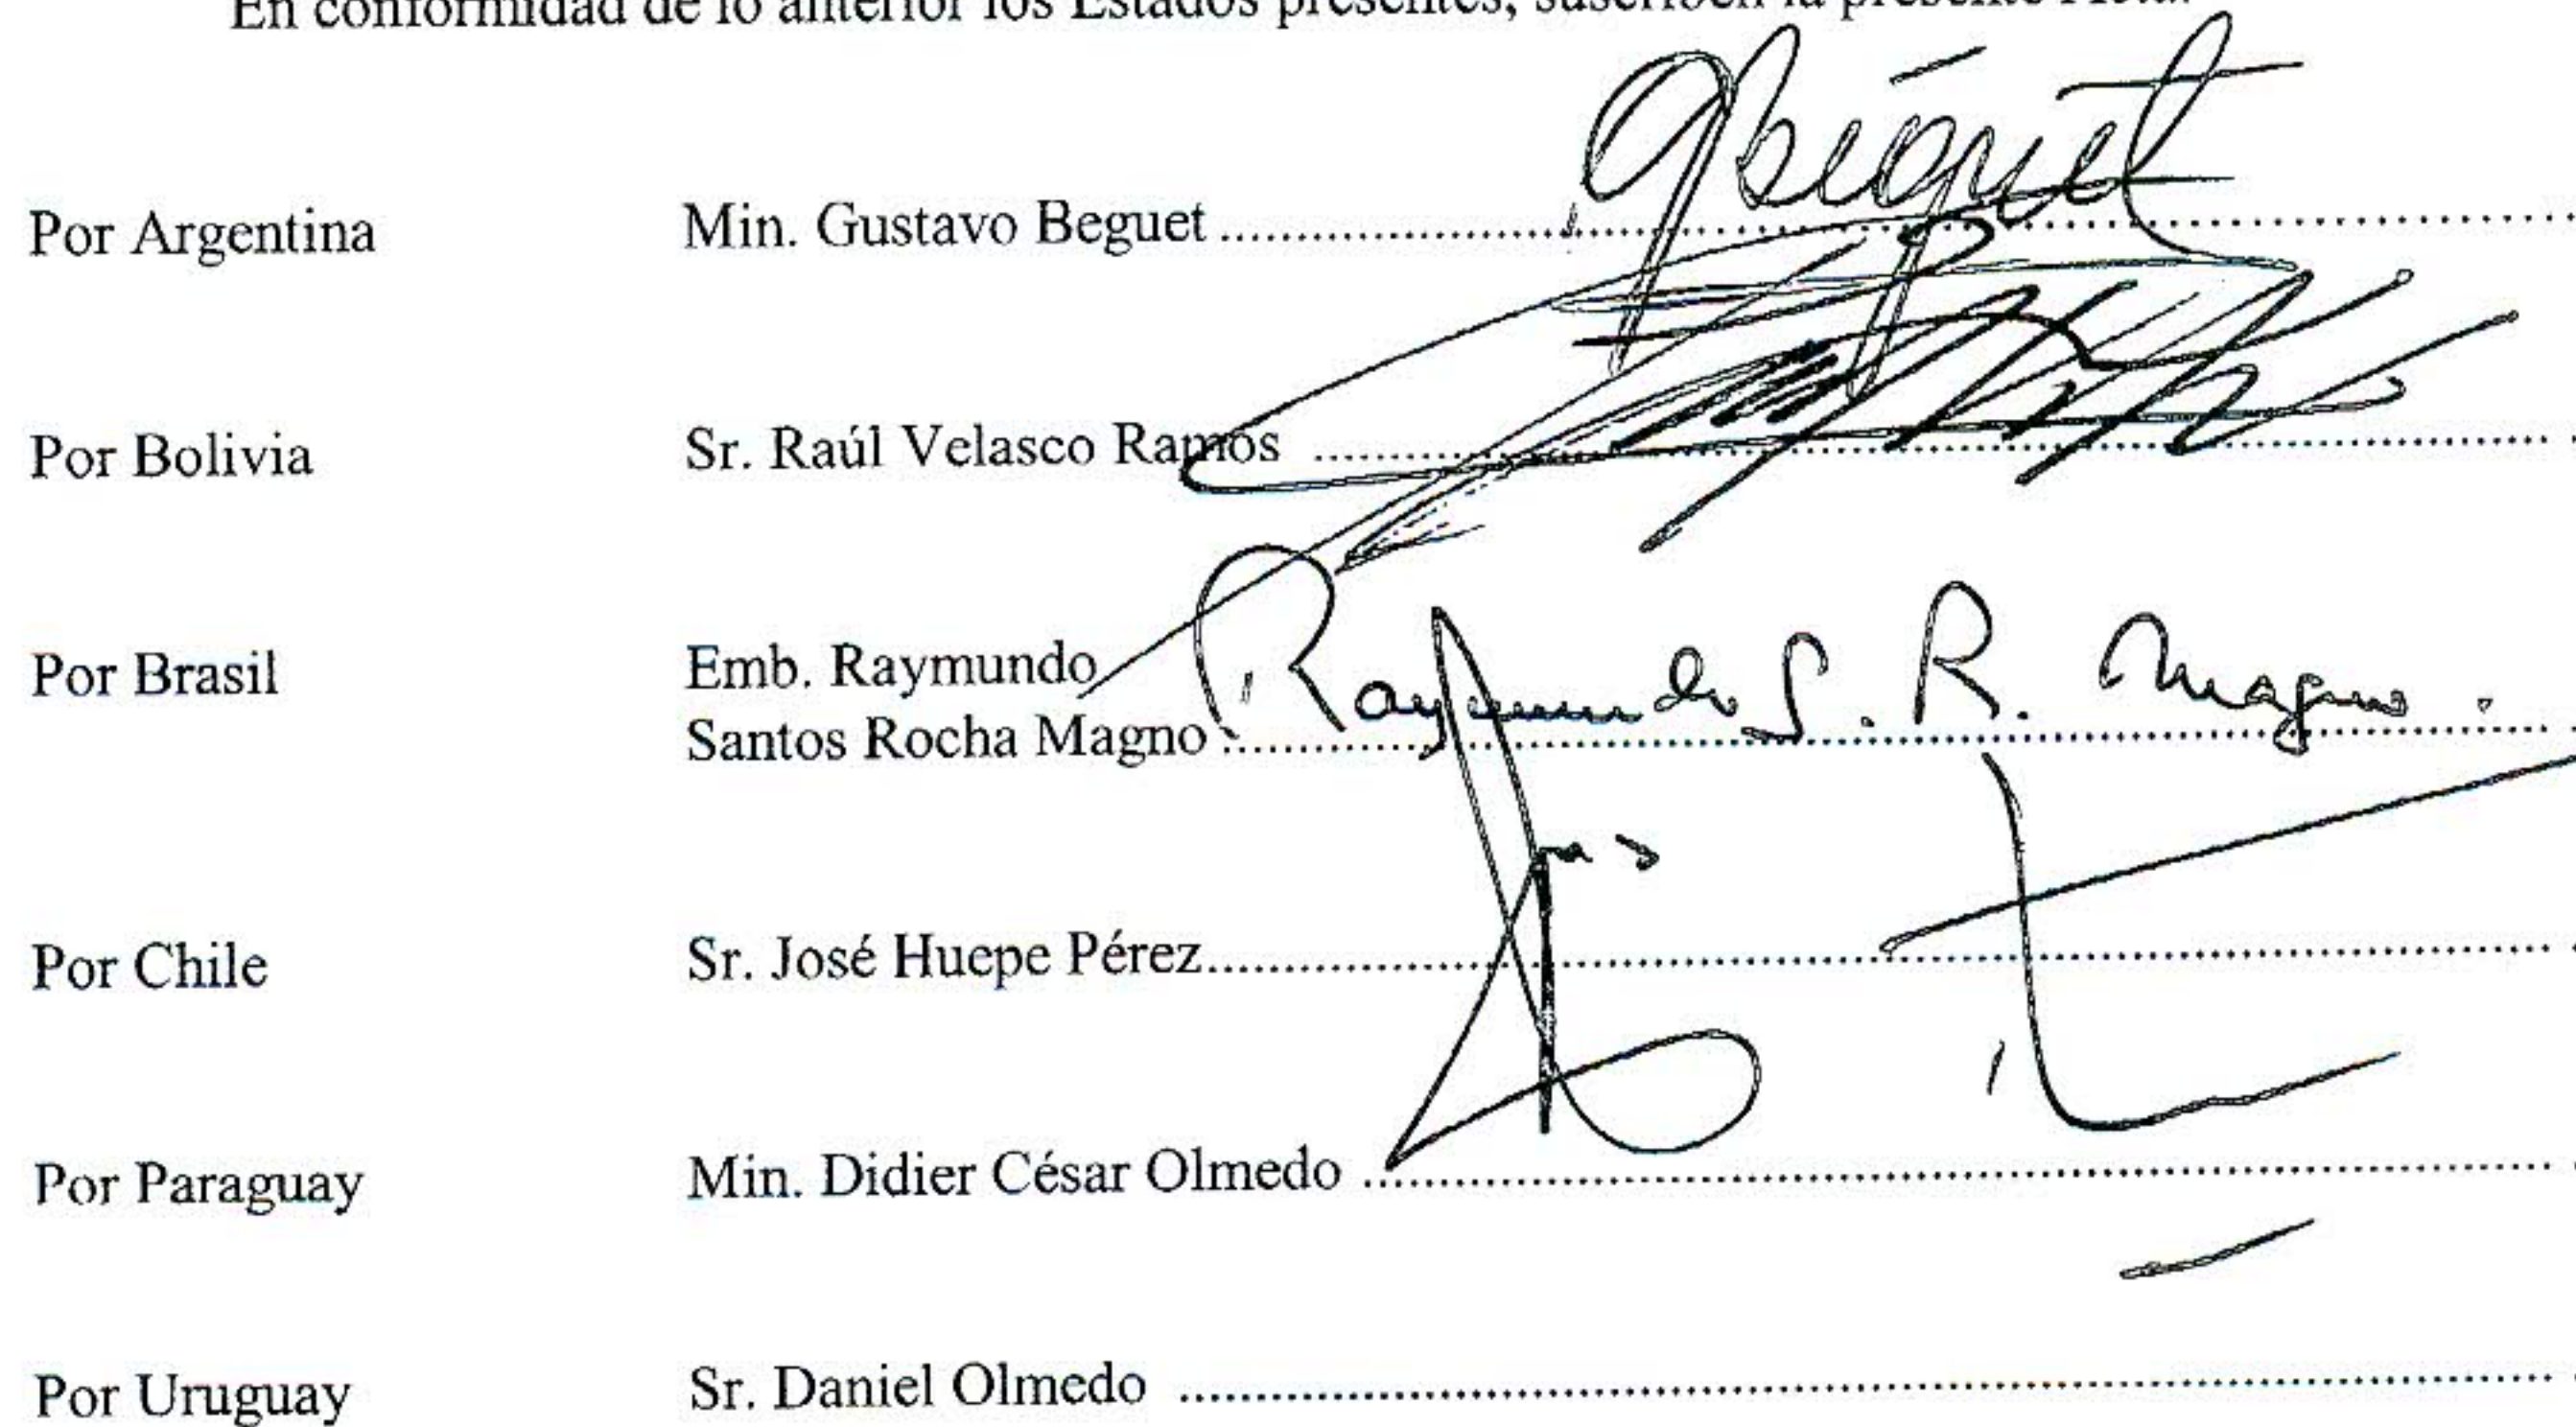 En conformidad de lo anterior los Estados presentes, suscriben la presente Acta.
Gbeguet
Por Argentina Min. Gustavo Beguet
Por Bolivia Sr. Raúl Velasco Ramos
Por Brasil Emb. Raymundo
Santos Rocha Magno Raymundo S. R. Magno.
Por Chile Sr. José Huepe Pérez
Por Paraguay Min. Didier César Olmedo
Por Uruguay Sr. Daniel Olmedo